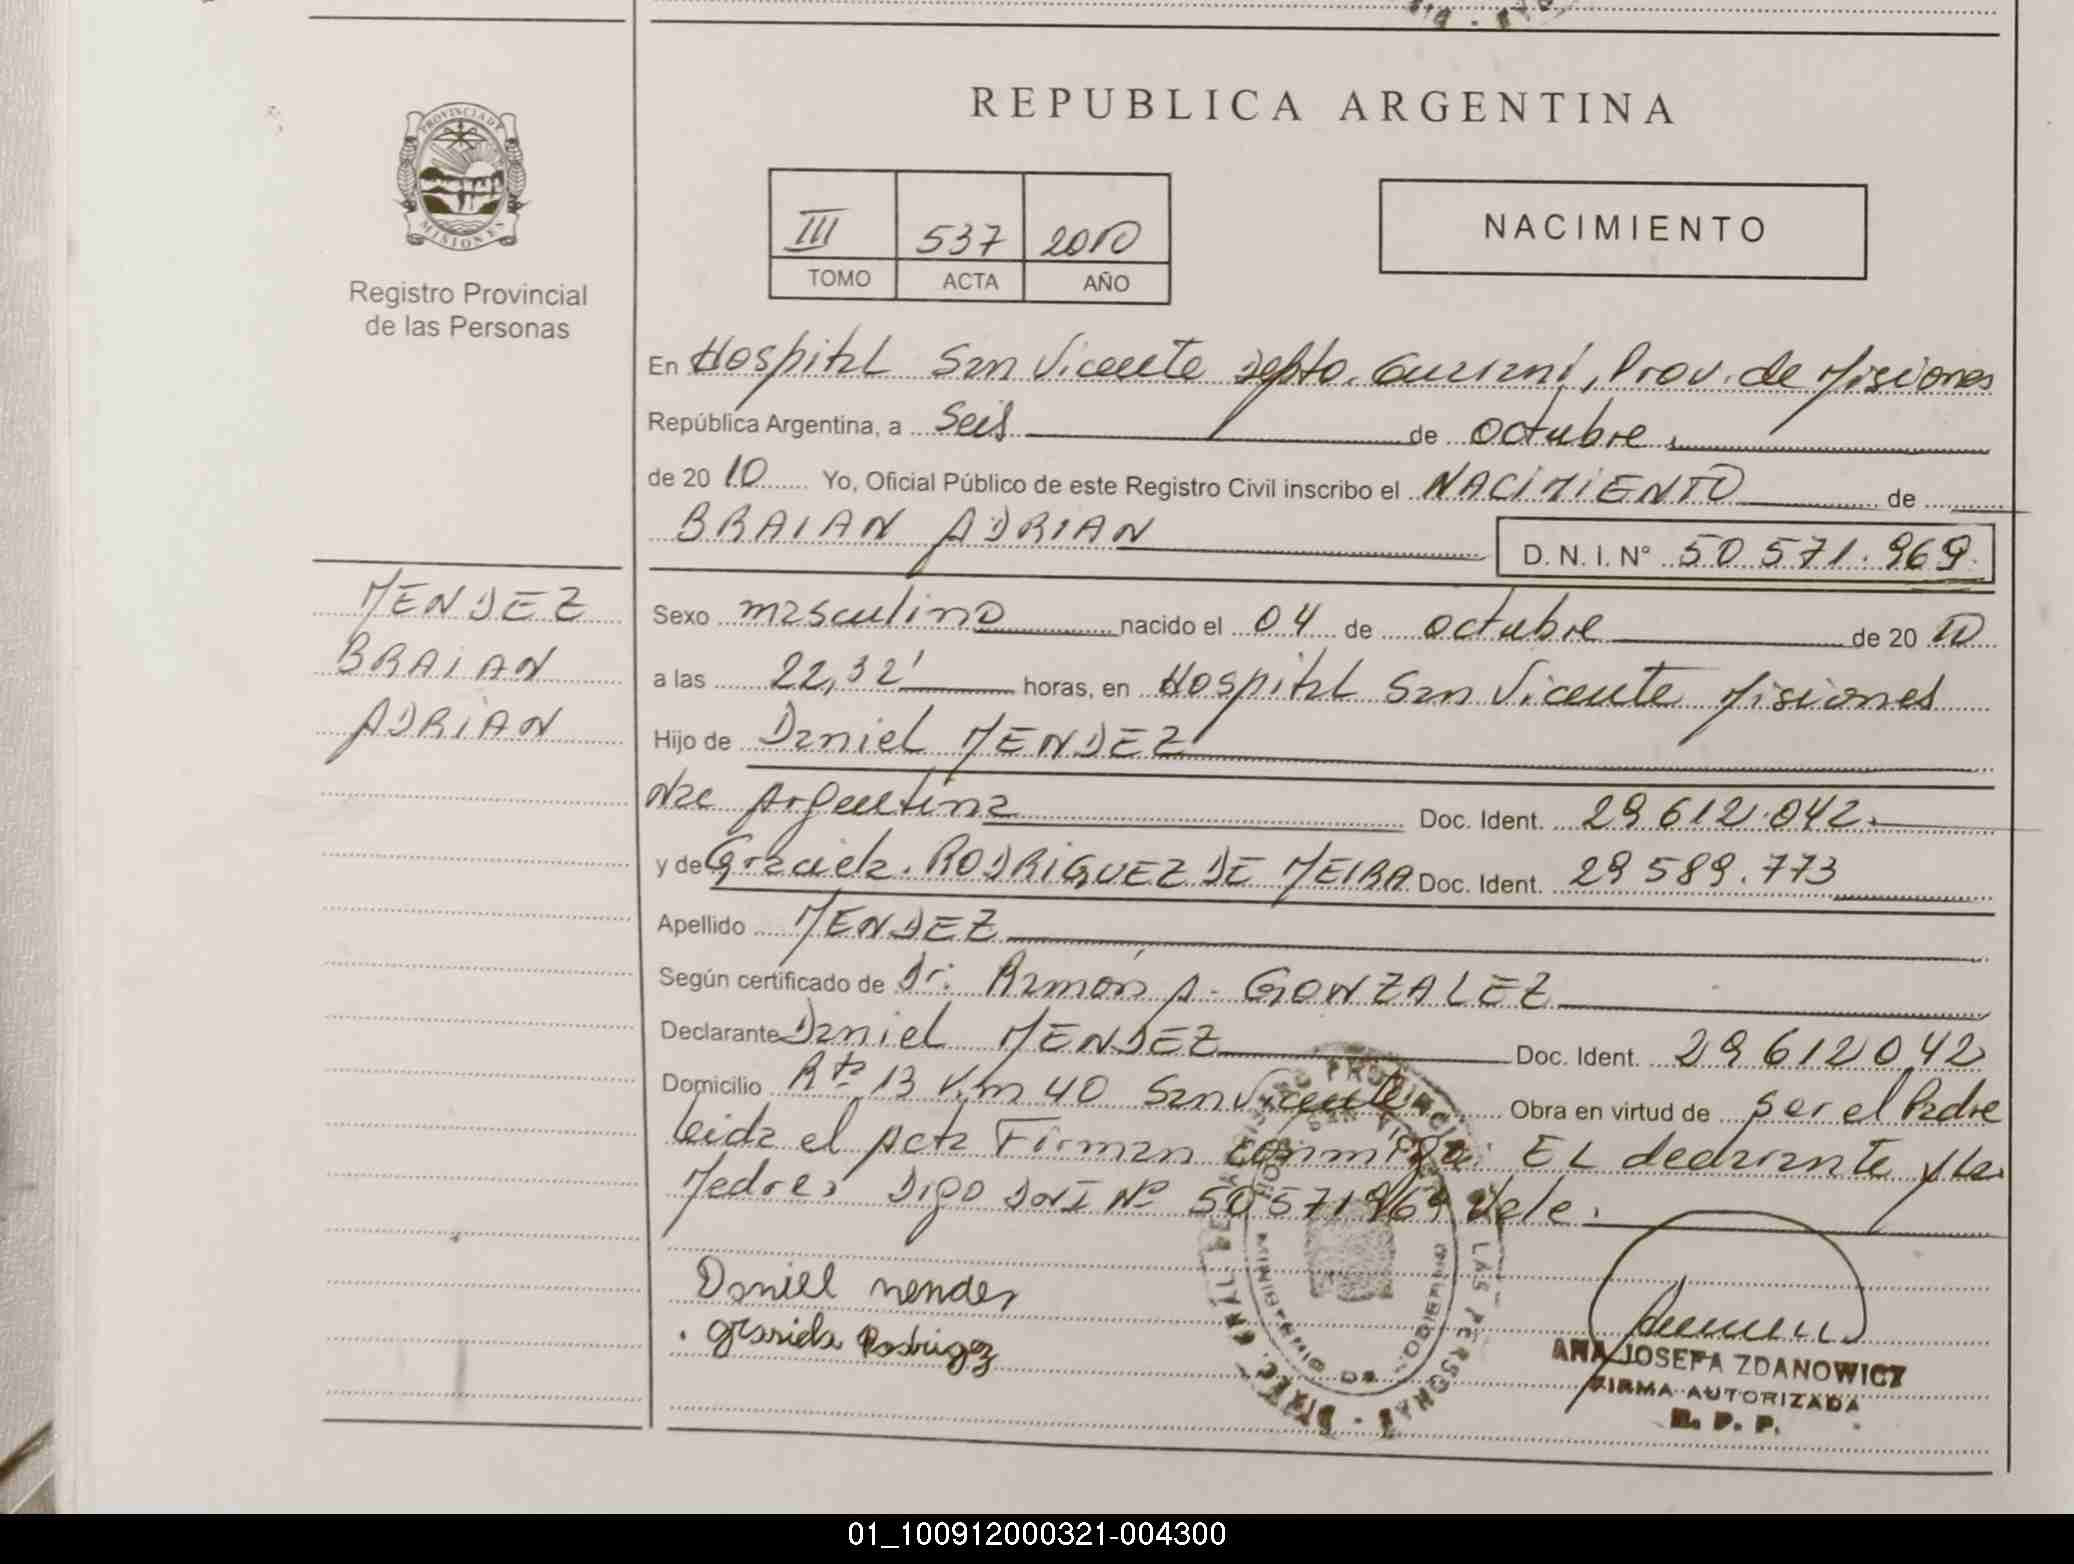 REPUBLICA ARGENTINA
PROVINCIA DE
MISIONES
Registro Provincial
de las Personas
III 537 2010
TOMO ACTA AÑO
NACIMIENTO
En Hospital San Vicente Depto. Guaraní, Prov. de Misiones
República Argentina, a Seis de octubre
de 20 10 Yo, Oficial Público de este Registro Civil inscribo el NACIMIENTO de
BRAIAN ADRIAN
D. N. I. N° 50.571.969
MENDEZ
BRAIAN
ADRIAN
Sexo masculino nacido el 04 de octubre de 20 10
a las 22,32' horas, en Hospital San Vicente Misiones
Hijo de Daniel MENDEZ
Nac Argentina Doc. Ident. 29.612.042.
y de Graciela. RODRIGUEZ DE MEIRA Doc. Ident. 29.589.773
Apellido MENDEZ
Según certificado de Dr: Ramón A. GONZALEZ
Declarante Daniel MENDEZ Doc. Ident. 29612042
Domicilio Rta 13 Km 40 San Vicente Obra en virtud de ser el Padre
leida el Acta Firman conmigo: EL declarante y La
Madre, Digo DNI Nº 50571969 Vale.
Daniel mendes
graciela Rodriguez
ANA JOSEFA ZDANOWICZ
FIRMA AUTORIZADA
R. P. P.
01_100912000321-004300